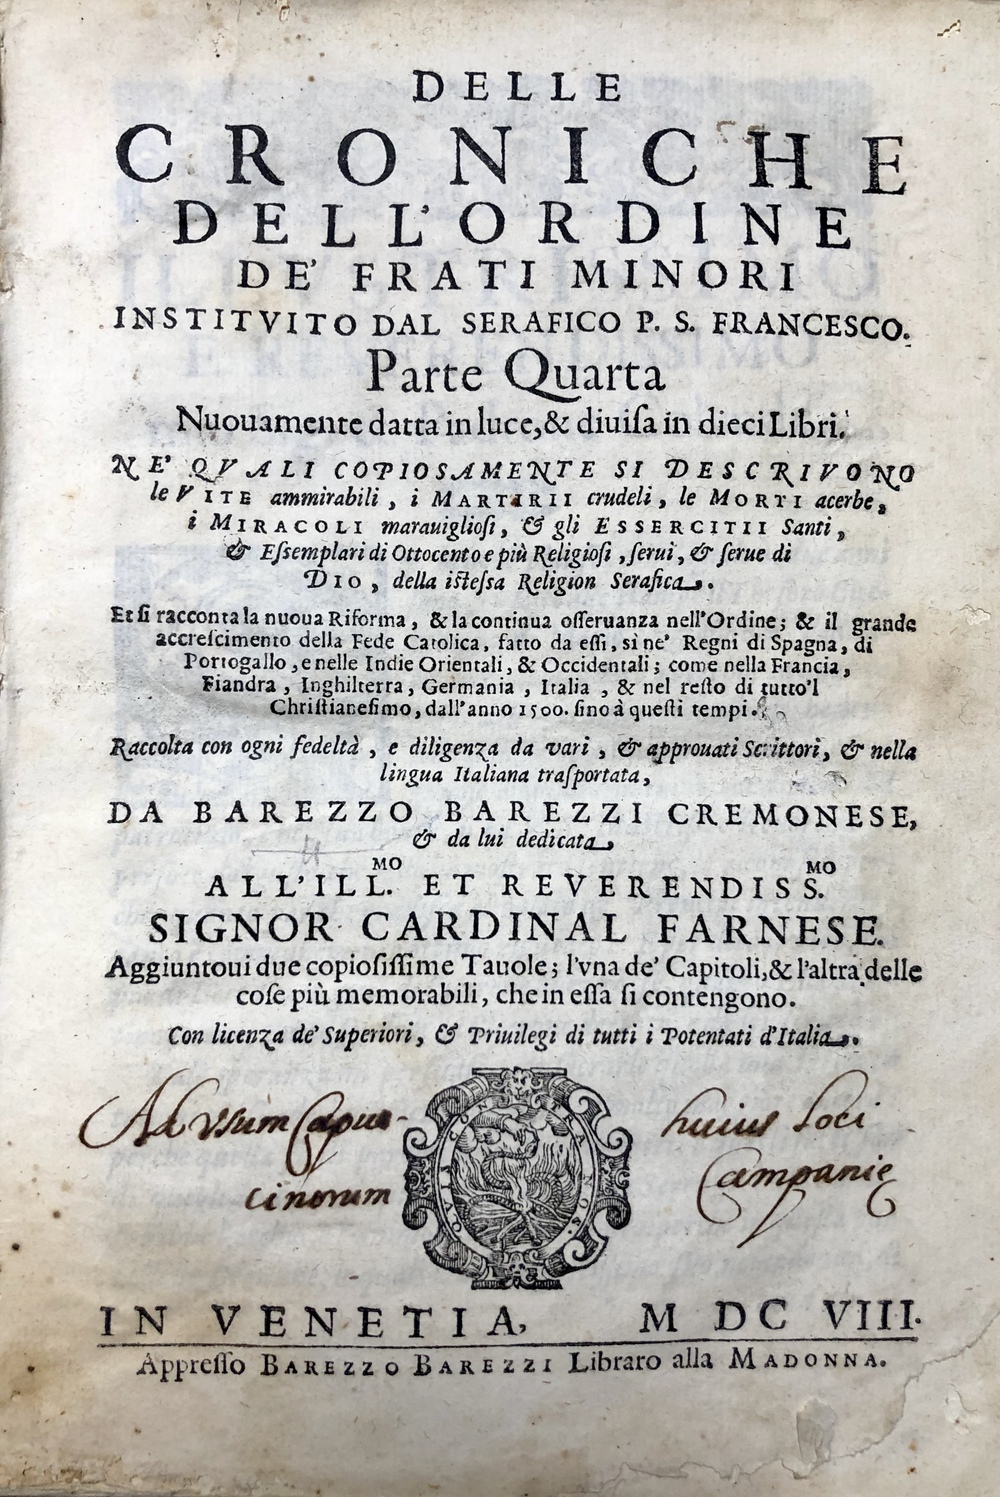 DELLE
CRONICHE
DELL'ORDINE
DE' FRATI MINORI
INSTITVITO DAL SERAFICO P. S. FRANCESCO.
Parte Quarta
Nuouamente datta in luce, & diuiſa in dieci Libri.
NE' QVALI COPIOSAMENTE SI DESCRIVONO
le VITE ammirabili, i MARTIRII crudeli, le MORTI acerbe,
i MIRACOLI marauiglioſi, & gli ESSERCITII Santi,
& Eſsemplari di Ottocento e più Religioſi, ſerui, & ſerue di
DIO, della iſteſsa Religion Serafica.
Et ſi racconta la nuoua Riforma, & la continua oſſeruanza nell'Ordine; & il grande
accreſcimento della Fede Catolica, fatto da eſſi, sì ne' Regni di Spagna, di
Portogallo, e nelle Indie Orientali, & Occidentali; come nella Francia,
Fiandra, Inghilterra, Germania, Italia, & nel reſto di tutto'l
Chriſtianeſimo, dall'anno 1500. ſino à queſti tempi.
Raccolta con ogni fedeltà, e diligenza da vari, & approuati Scrittori, & nella
lingua Italiana traſportata,
DA BAREZZO BAREZZI CREMONESE,
& da lui dedicata,
ALL'ILL.MO ET REVERENDISS.MO
SIGNOR CARDINAL FARNESE.
Aggiuntoui due copioſiſſime Tauole; l'vna de' Capitoli, & l'altra delle
coſe più memorabili, che in eſſa ſi contengono.
Con licenza de' Superiori, & Priuilegi di tutti i Potentati d'Italia.
Ad vsum Capu-
cinorum
huius loci
Campanie
IN VENETIA, M DC VIII.
Appreſſo BAREZZO BAREZZI Libraro alla MADONNA.